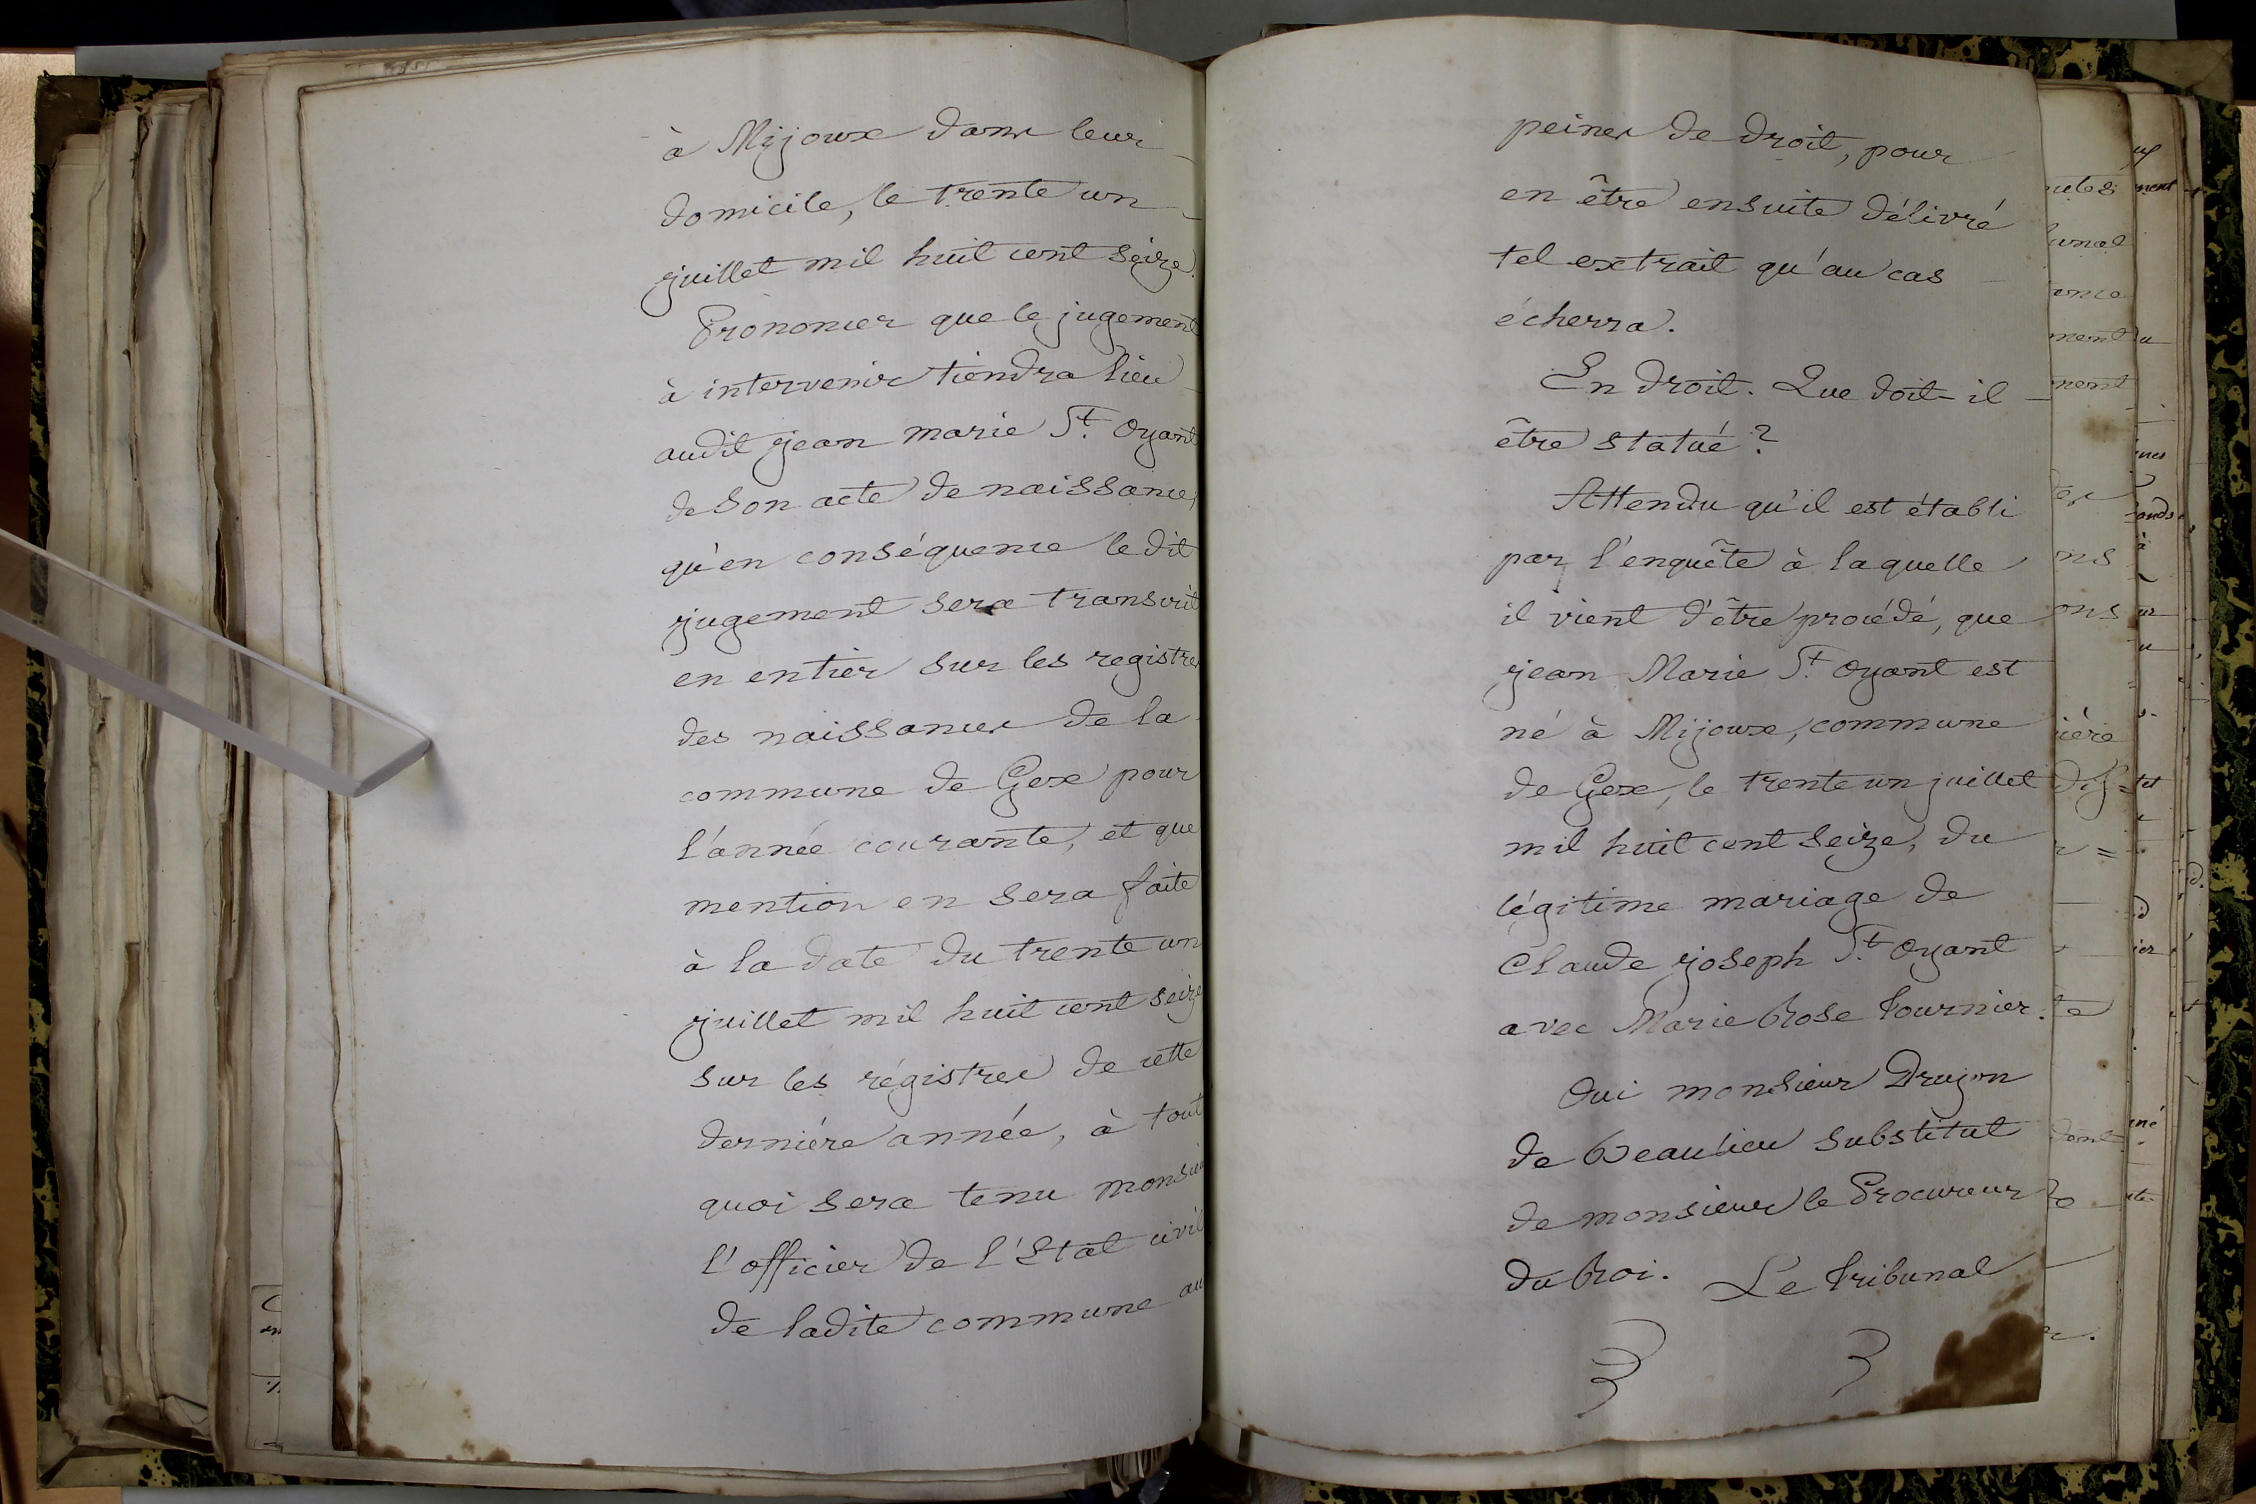 à Mijoux dans leur
domicile, le trente un
juillet mil huit cent seize.
Prononcer que le jugement
à intervenir tiendra lieu
audit jean marie St. Oyant
de son acte de naissance,
qu'en conséquence le dit
jugement sera transcrit
en entier sur les registres
des naissances de la
commune de Gex pour
l'année courante, et que
mention en sera faite
à la date du trente un
juillet mil huit cent seize
sur les régistres de cette
dernière année, à tout
quoi sera tenu monsieu
l'officier de l'Etat civil
de ladite commune au
peines de droit, pour
en être ensuite délivré
tel extrait qu'au cas
écherra.
En droit. Que doit-il
être statué?
Attendu qu'il est établi
par l'enquête à laquelle
il vient d'être procédé, que
jean Marie St. Oyant est
né à Mijoux, commune
de Gex, le trente un juillet
mil huit cent seize, du
légitime mariage de
Claude joseph St. Oyant
avec Marie Rose Fournier.
Oui monsieur Drujon
de Beaulieu substitut
de monsieur le Procureur
du Roi. Le Tribunal